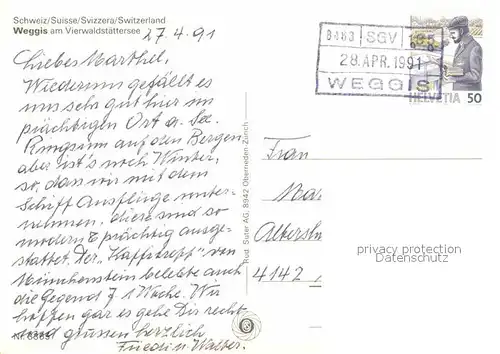 Schweiz/Suisse/Svizzera/Switzerland
Weggis am Vierwaldstättersee
27.4.91
Liebes Martheli,
Wiederum gefällt es
uns sehr gut hier im
prächtigen Ort a. See.
Ringsum auf den Bergen
aber ist's noch Winter,
so, dass wir mit dem
Schiff Ausflüge unter-
nehmen, diese sind so
modern & prächtig ausge-
stattet. Der "Kaffitreff" von
Münchenstein belebte auch
die Gegend 1 Woche. Wir
hoffen gar es gehe Dir recht
und grüssen herzlich
Friedi u. Walter.
Nr.
Rud. Suter AG, 8942 Oberrieden-Zürich
8483 SGV
28. APR. 1991
WEGGIS
HELVETIA 50
Frau
Mar
Altersh
4142
privacy protection
Datenschutz